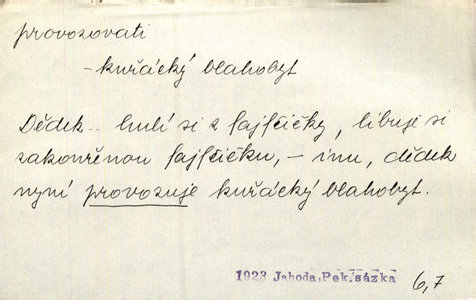 provozovati
- kuřácký blahobyt
Dědek.. hulí si z fajfčičky, libuje si
zakouřenou fajfčičku, - inu, dědek
nyní provozuje kuřácký blahobyt.
1923 Jahoda, Pek. sázka 6,7